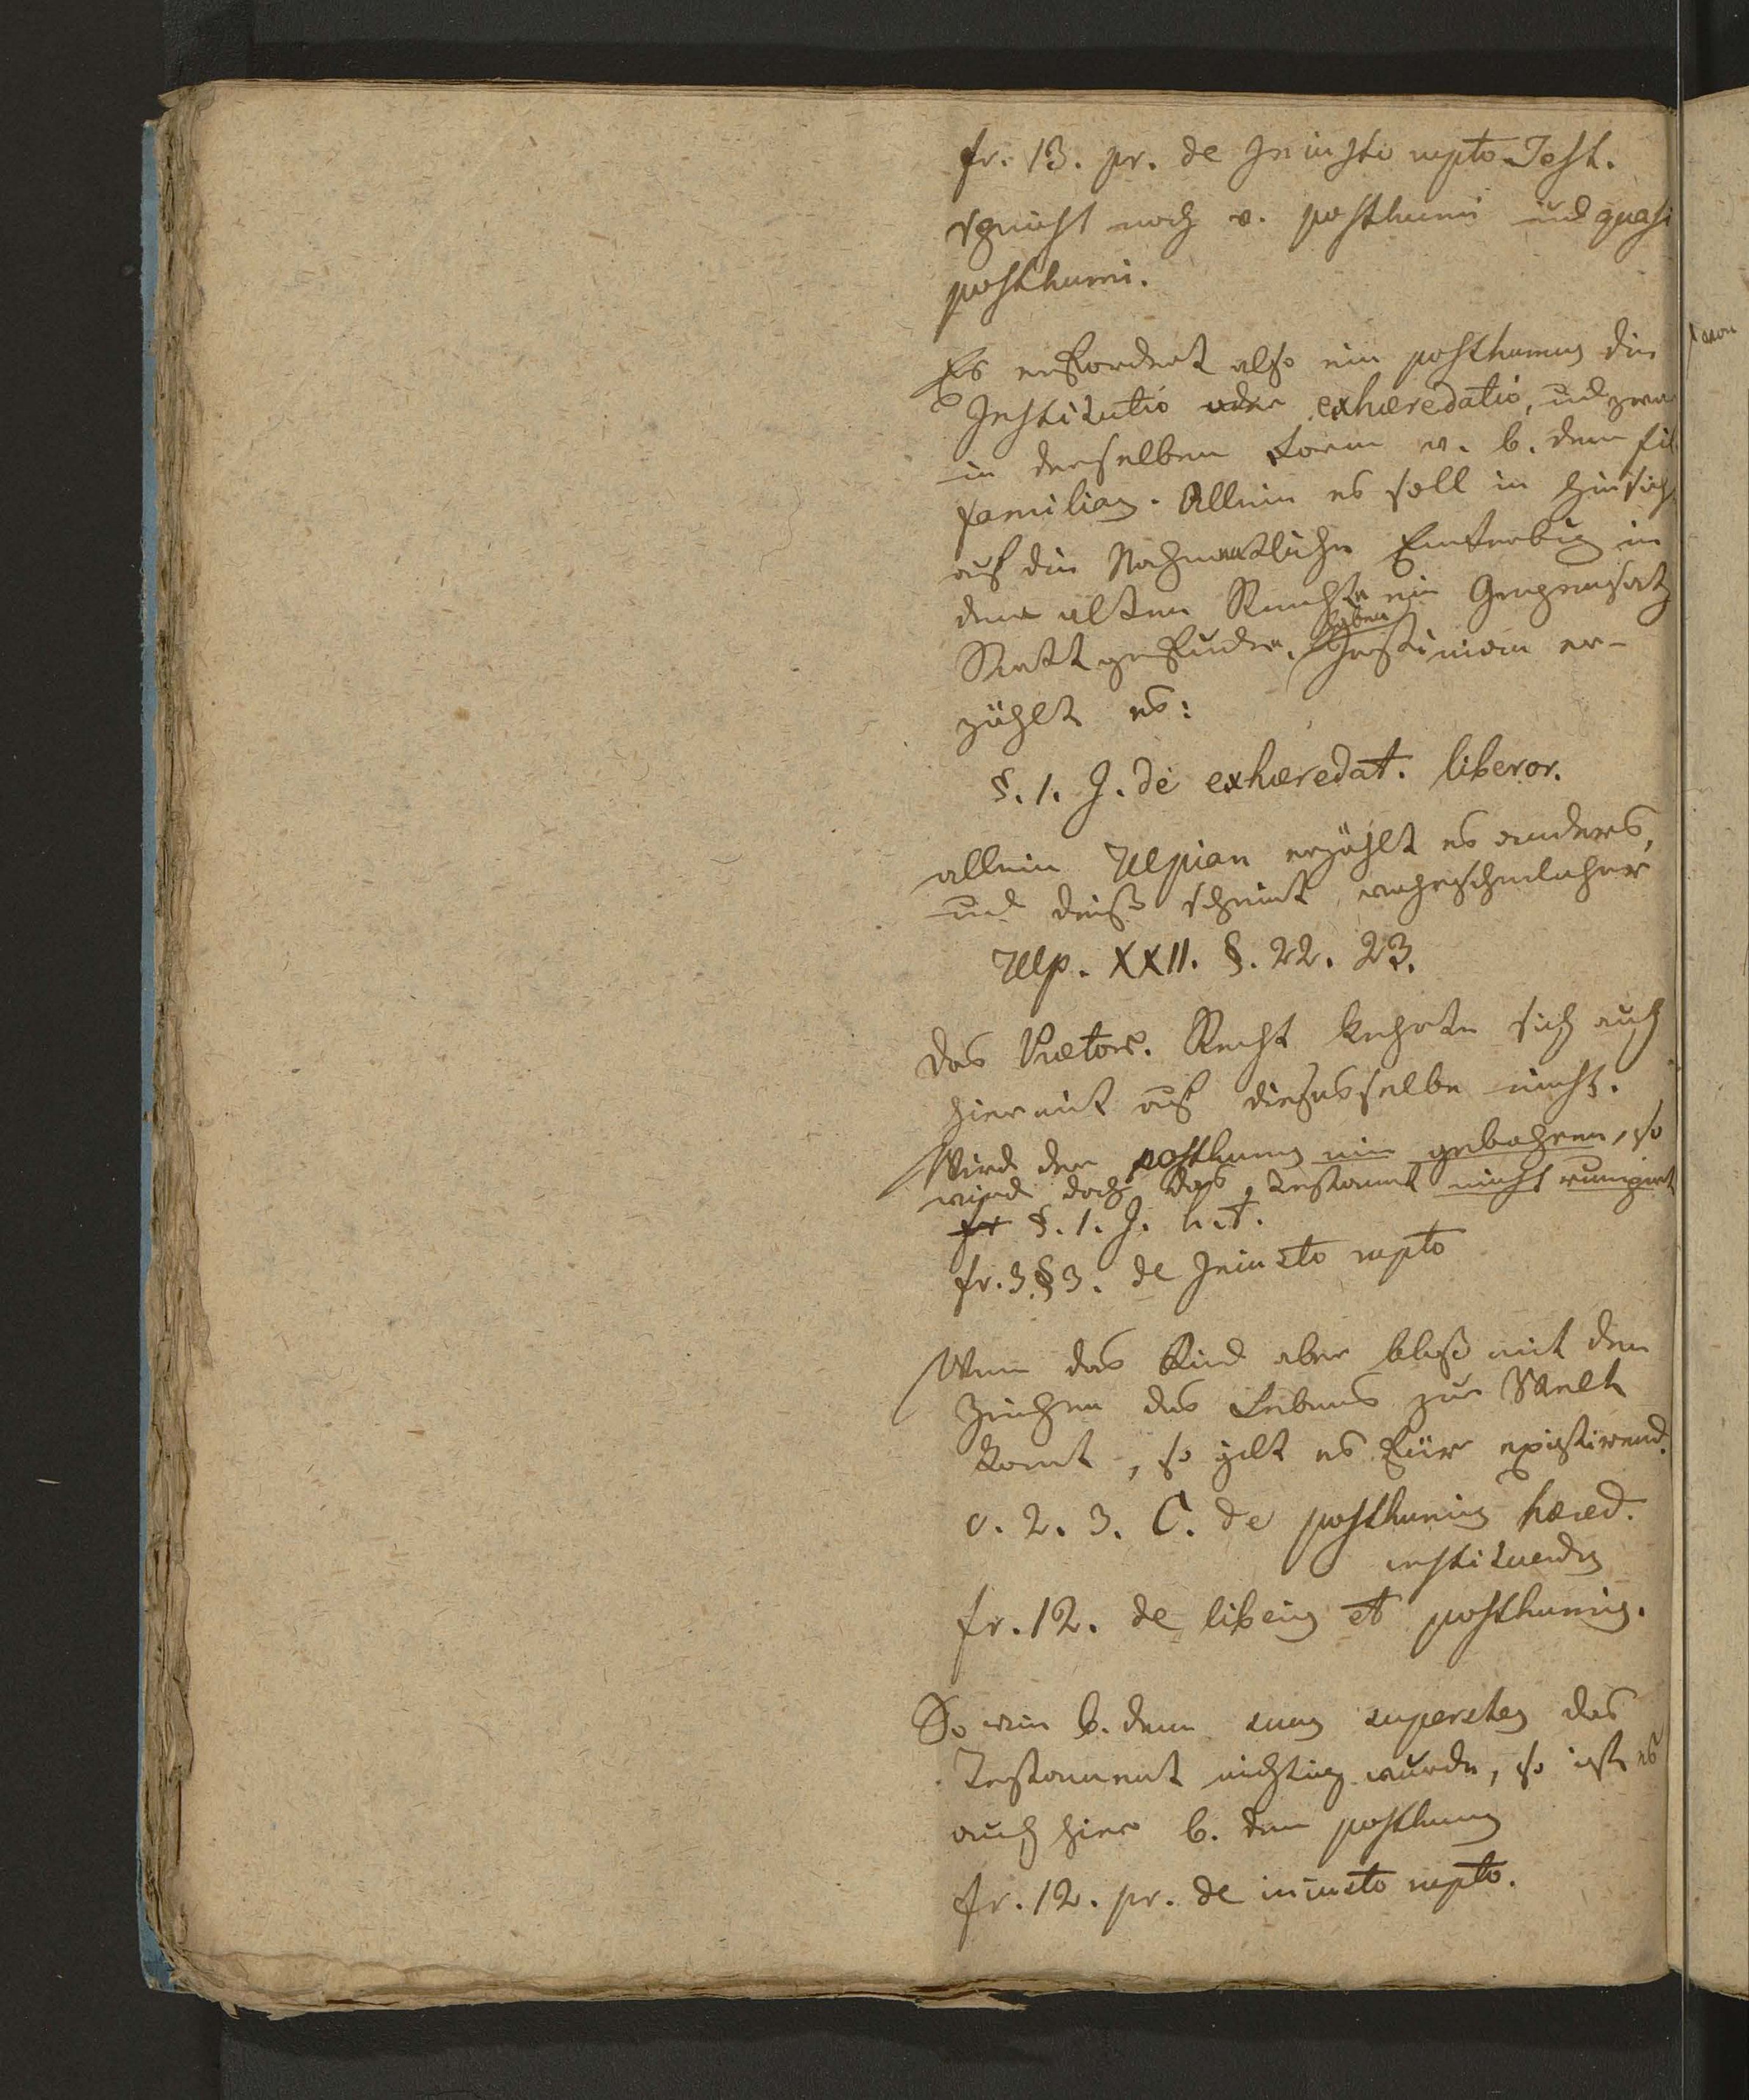 fr. 13. pr. de Iniusto rupto Test.
spricht noch v. posthumi und quasi
posthumi.
Es erfordert also ein posthumus die
Institutio oder exhæredatio, und zwar
in derselben Form w. b. dem fil.
familias. Allein es soll in Hinsicht
auf die Enterbung in
dem alten Rechte ein Gegensatz
Statt gefunden haben. Justinian er-
zählt es:
§. 1. J. de exhæredat. liberor.
allein Ulpian erzählt es anders,
und dieß scheint wahrscheinlicher
Ulp. XXII. §. 22. 23.
Das Prætor. Recht kehrte sich auch
hiermit auf dieses selbe nicht.
Wird der posthumus nie gebohren, so
wird doch das Testament nicht rumpirt
fr §. 1. J. h. t.
fr. 3 § 3. de Iniusto rupto
Wenn das Kind aber bloß mit den
Zeichen des Lebens zur Welt
komt, so gilt es für existirend.
c. 2. 3. C. de posthumis hæred.
instituendis
fr. 12. de liberis et posthumis.
So wie b. dem suus superstes das
Testament nichtig wurde, so ist es
auch hier b. dem posthumus
fr. 12. pr. de iniusto rupto.